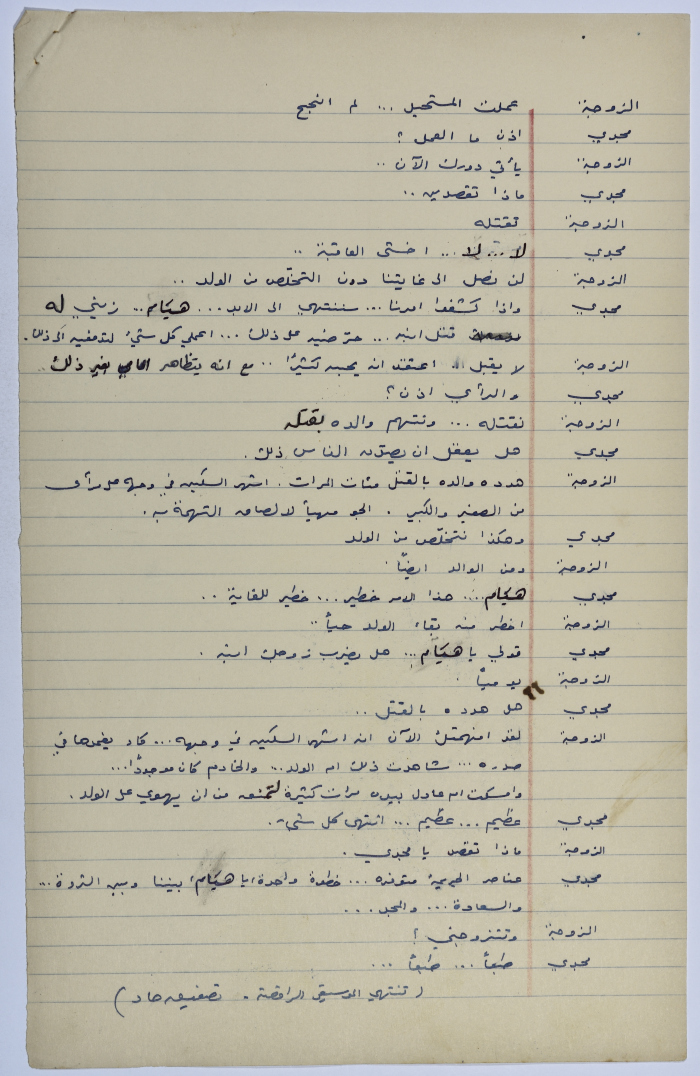 الزوجة عملت المستحيل ... لم انجح
مجدي اذن ما العمل ؟
الزوجة يأتي دورك الآن ..
مجدي ماذا تقصدين ..
الزوجة تقتله
مجدي لا ... لا ... اخشى العاقبة ..
الزوجة لن نصل الى غايتنا دون التخلّص من الولد ..
مجدي واذا كشفوا امرنا ... سننتهي الى الابد ... هيَام .. زيني له
قتل ابنه ... حرّضيه على ذلك ... اعملي كل شيء لتدفعيه الى ذلك .
الزوجة لا يقبل .. اعتقد انه يحبه كثيرًا .. مع انه يتظاهر امامي بغير ذلك ..
مجدي والرأي اذن ؟
الزوجة نقتله ... ونتهم والده بقتله
مجدي هل يعقل ان يصدّق الناس ذلك .
الزوجة هدده والده بالقتل مئات المرات . اشهر السكين في وجهه على مرأى
من الصغير والكبير . الجو مهيأ لالصاق التهمة به .
مجدي وهكذا نتخلّص من الولد
الزوجة ومن الوالد ايضًا .
مجدي هيَام ... هذا الامر خطير ... خطير للغاية ..
الزوجة اخطر منه بقاء الولد حياً ..
مجدي قولي يا هيَام ... هل يضرب زوجك ابنه .
الزوجة يومياً .
٢٦
مجدي هل هدده بالقتل ..
الزوجة لقد افهمتك الآن انه اشهر السكين في وجهه ... كاد يغمدها في
صدره ... شاهدت ذلك ام الولد ... والخادم كان موجودًا ...
وامسكت ام عادل بيده مرات كثيرة لتمنعه من ان يهوي على الولد .
مجدي عظيم ... عظيم ... انتهى كل شيء .
الزوجة ماذا تقصد يا مجدي .
مجدي عناصر الجريمة متوفرة ... خطوة واحدة يا هيَام بيننا وبين الثروة ...
والسعادة ... والمجد ...
الزوجة وتتزوجني ؟
مجدي طبعاً ... طبعاً ...
( تنتهي الموسيقى الراقصة . تصفيق حاد )